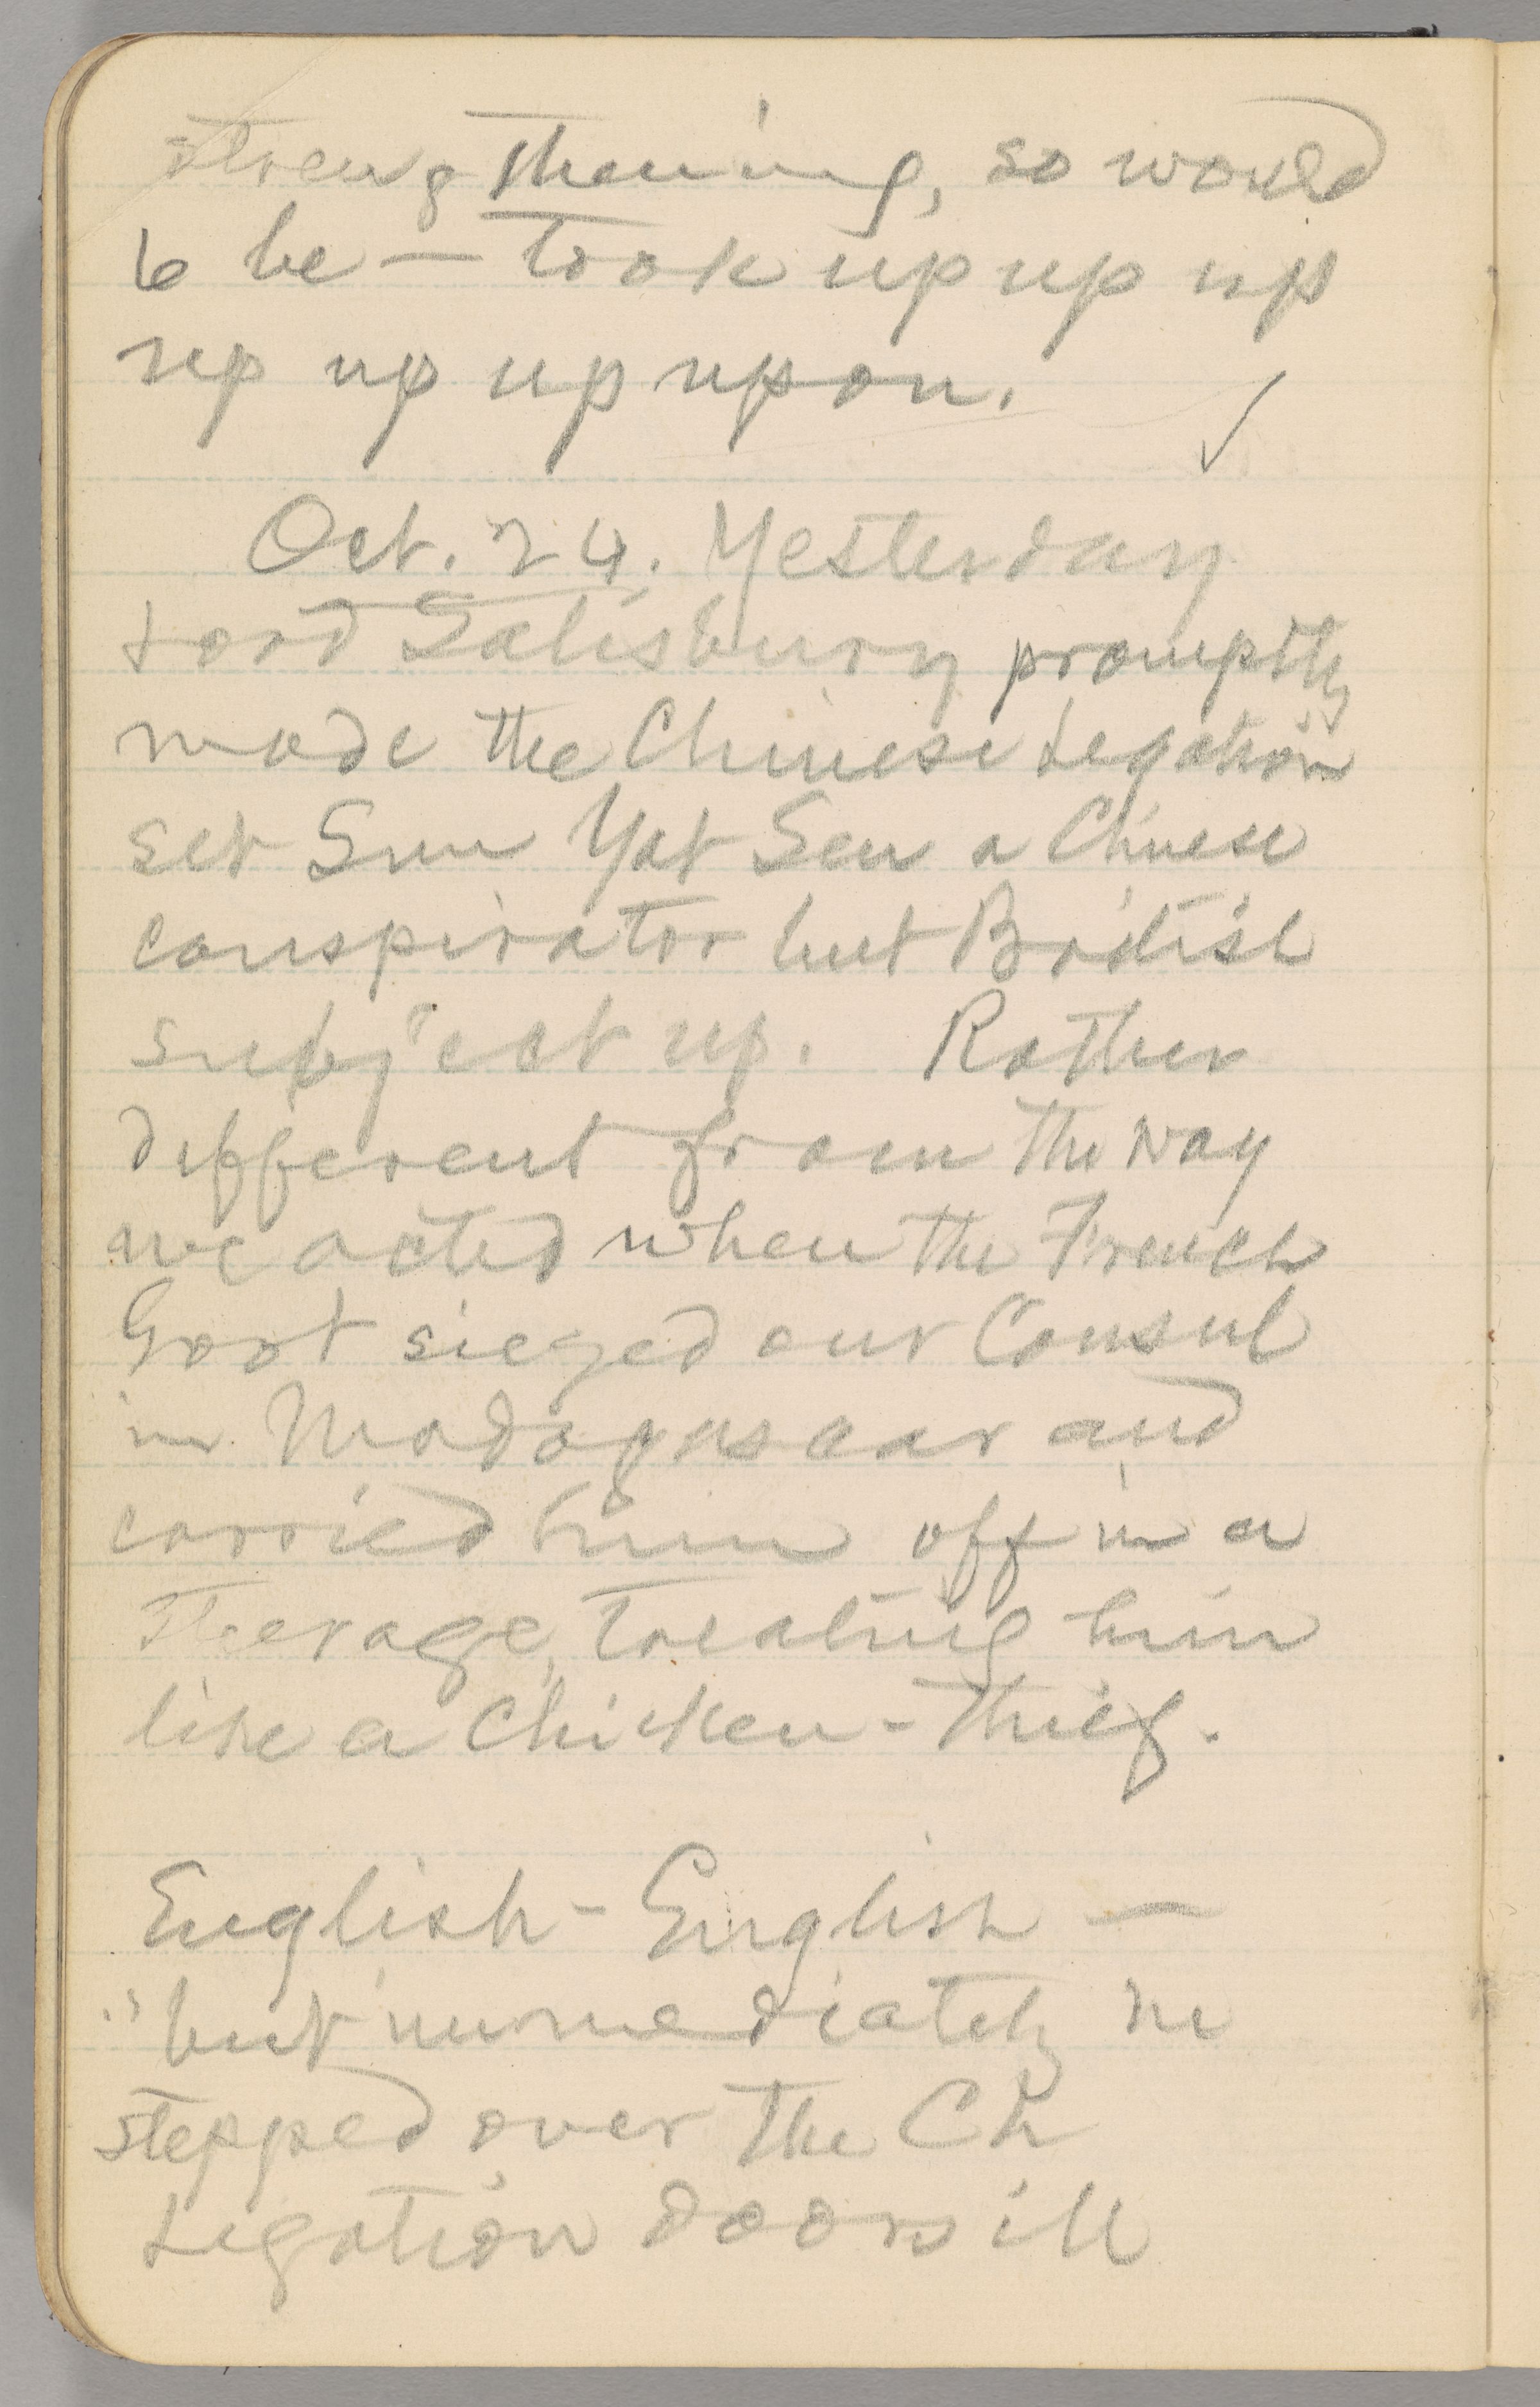 strengthening, so would
to be — took up up up
up up up upon.
Oct. 24. Yesterday
Lord Salisbury promptly
made the Chinese Legation
set Sun Yat Sen a Chinese
conspirator but British
subject up. Rather
different from the way
we acted when the French
Govt siezed our Consul
in Madagascar and
carried him off in a
steerage, treating him
like a Chicken-thief.
English-English —
"but immediately he
stepped over the Ch
Legation doorsill